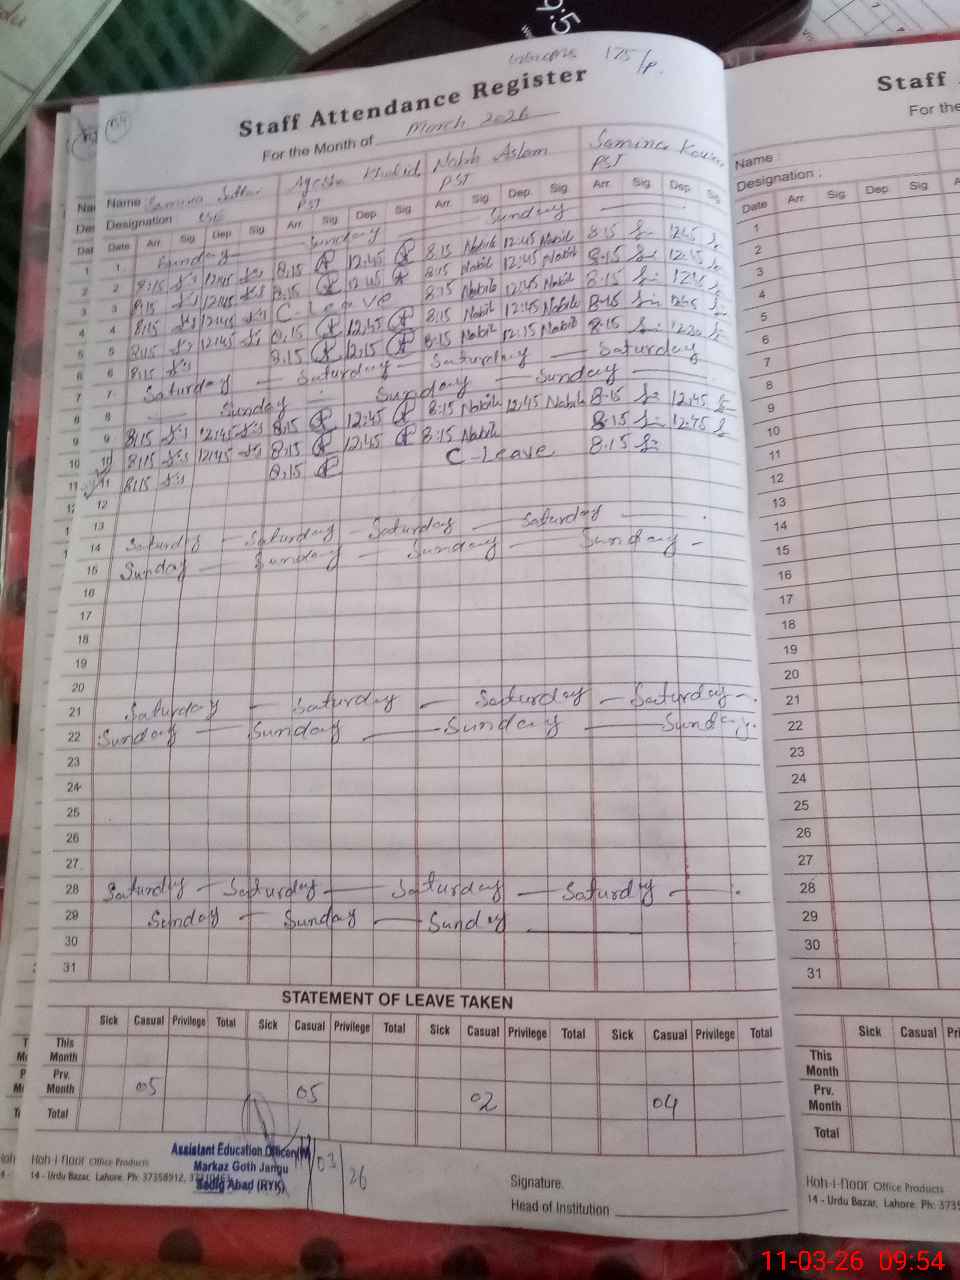 175/p.
Staff Attendance Register
For the Month of March 2026
Name Samina Ayesha Khalid Nabila Aslam Samina Kousar
Designation PST PST PST
Date Arr. Sig Dep Sig Arr. Sig Dep Sig Arr. Sig Dep Sig Arr. Sig Dep Sig
1 Sunday — Sunday — Sunday —
2 8:15 12:45 8:15 12:45 8:15 Nabila 12:45 Nabila 8:15 12:45
3 8:15 12:45 8:15 12:45 8:15 Nabila 12:45 Nabila 8:15 12:45
4 8:15 12:45 C Leave 8:15 Nabila 12:45 Nabila 8:15 12:45
5 8:15 12:45 8:15 12:45 8:15 Nabila 12:45 Nabila 8:15 12:45
6 8:15 8:15 12:15 8:15 Nabila 12:15 Nabila 8:15
7 Saturday — Saturday — Saturday — Saturday
8 — Sunday — Sunday — Sunday —
9 8:15 12:45 8:15 12:45 8:15 Nabila 12:45 Nabila 8:15 12:45
10 8:15 12:45 8:15 12:45 8:15 Nabila 8:15 12:45
11 8:15 8:15 C-Leave 8:15
12
13
14 Saturday — Saturday — Saturday — Saturday —
15 Sunday — Sunday — Sunday — Sunday —
16
17
18
19
20
21 Saturday — Saturday — Saturday — Saturday —
22 Sunday — Sunday — Sunday — Sunday
23
24
25
26
27
28 Saturday — Saturday — Saturday — Saturday —
29 Sunday — Sunday — Sunday —
30
31
STATEMENT OF LEAVE TAKEN
Sick Casual Privilege Total Sick Casual Privilege Total Sick Casual Privilege Total Sick Casual Privilege Total
This Month
Prv. Month 05 05 02 04
Total
Assistant Education Officer(W)
Markaz Goth Jangu
Sadiq Abad (RYK)
03/26
Hoh-i-noor Office Products
14 - Urdu Bazar, Lahore. Ph: 37358912,
Signature.
Head of Institution
Staff
For the
Name
Designation :
Date Arr. Sig Dep Sig
1
2
3
4
5
6
7
8
9
10
11
12
13
14
15
16
17
18
19
20
21
22
23
24
25
26
27
28
29
30
31
Sick Casual
This Month
Prv. Month
Total
Hoh-i-noor Office Products
14 - Urdu Bazar, Lahore. Ph:
11-03-26 09:54